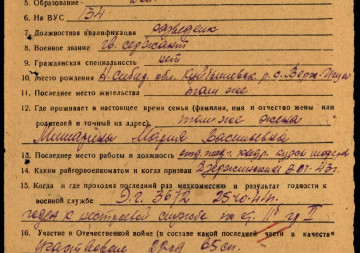 5. Образование
6. На ВУС 134
7. Должностная квалификация разведчик
8. Военное звание гв. сержант
9. Гражданская специальность нет
10. Место рождения Н. Сибир. обл. Куйбышевск.
11. Последнее место жительства там же
12. Где проживает в настоящее время семья (фамилия, имя и отчество жены или
родителей и точный их адрес). там же жена
Мария Васильевна
13. Последнее место работы и должность
14. Каким райгорвоенкоматом и когда призван Дзержинским
15. Когда и где проходил последний раз медкомиссию и результат годности к
военной службе Э.Г. 3672 25-10-44г.
годен к нестроевой службе по ст. III гр II
16. Участие в Отечественной войне (в составе какой последней части и в качестве